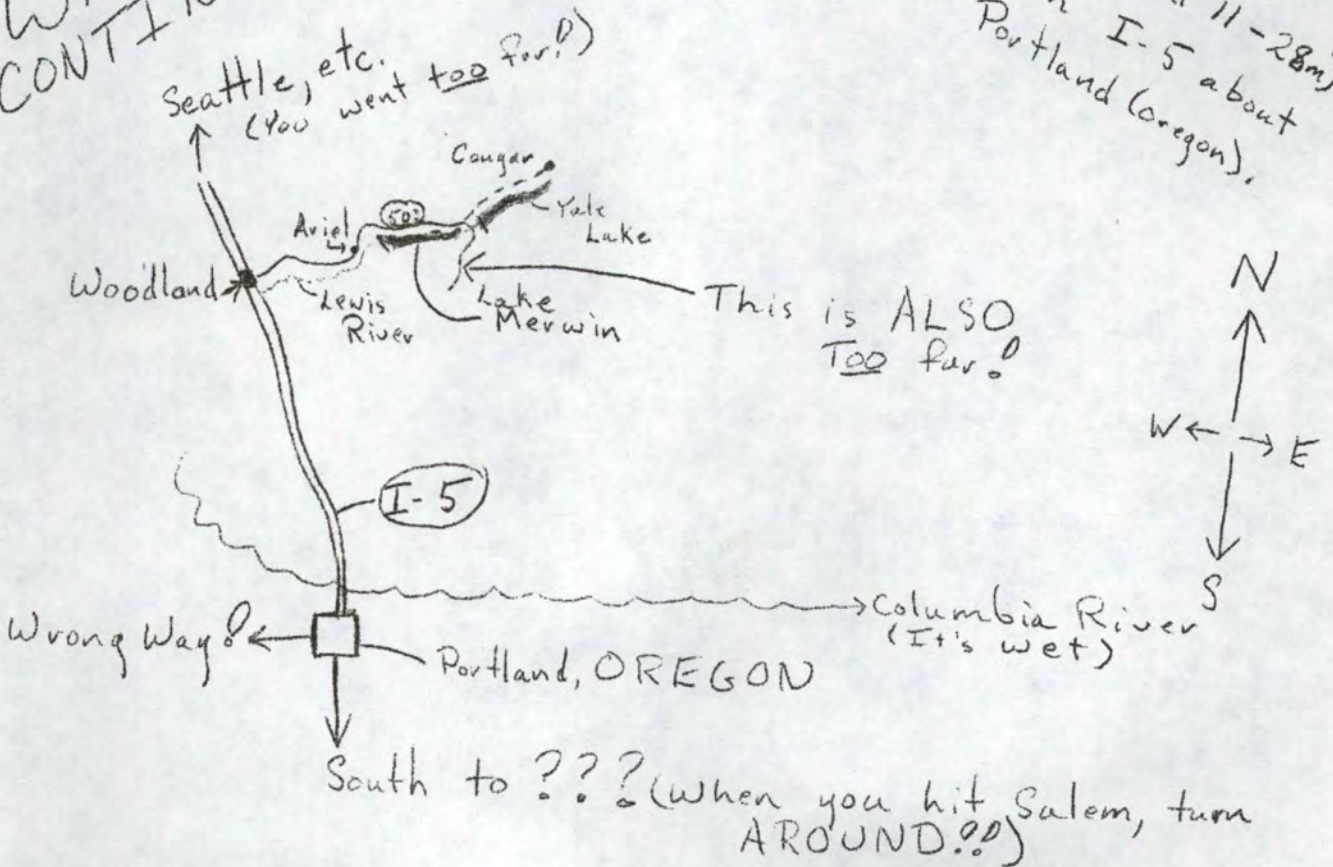 CONTIN
11-28m
I-5 about
Portland (oregon).
Seattle, etc.
(You went too far!)
Cougar
Yale
Lake
Ariel
503
Woodland
Lewis
River
Lake
Merwin
This is ALSO
TOO far!
N
W E
S
I-5
Columbia River
(It's wet)
Wrong Way!
Portland, OREGON
South to ??? (When you hit Salem, turn
AROUND!!)